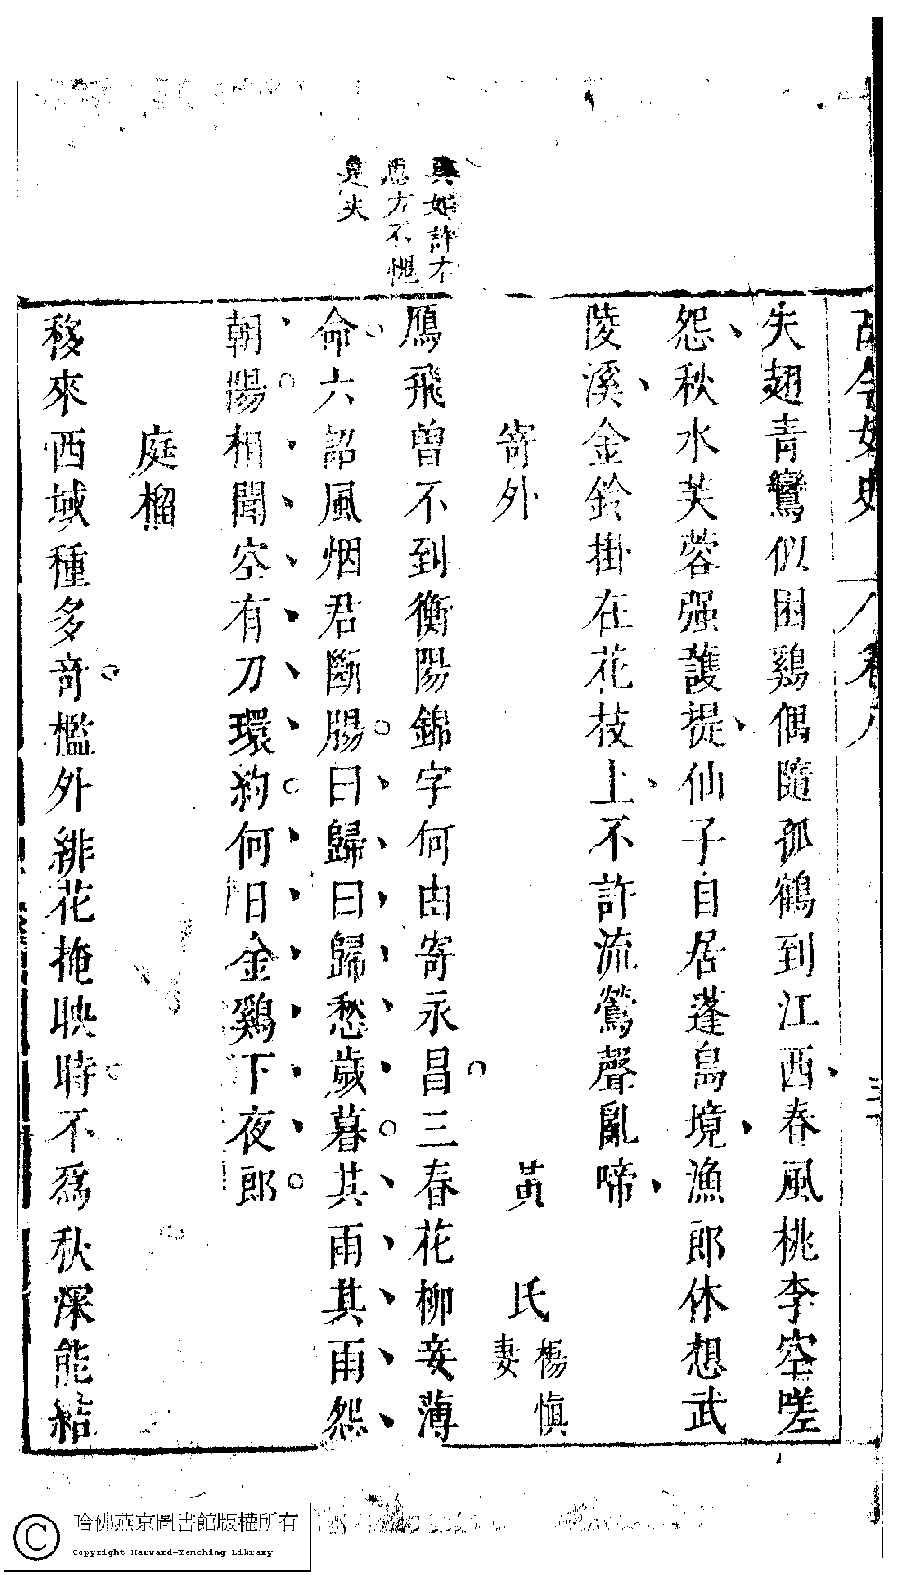 古今女史 卷八
失翅青鸞似困鷄偶隨孤鶴到江西春風桃李空嗟
怨秋水芙蓉强護提仙子自居蓬島境漁郎休想武
陵溪金鈴掛在花枝上不許流鶯聲亂啼
寄外 黃氏 楊慎妻
鴈飛曾不到衡陽錦字何由寄永昌三春花柳妾薄
命六詔風烟君斷腸曰歸曰歸愁歲暮其雨其雨怨
朝陽相聞空有刀環約何日金鷄下夜郎
庭榴
移來西域種多奇檻外緋花掩映時不爲秋深能結
方不愧
是夫
哈佛燕京圖書館版權所有
Copyright Harvard-Yenching Library